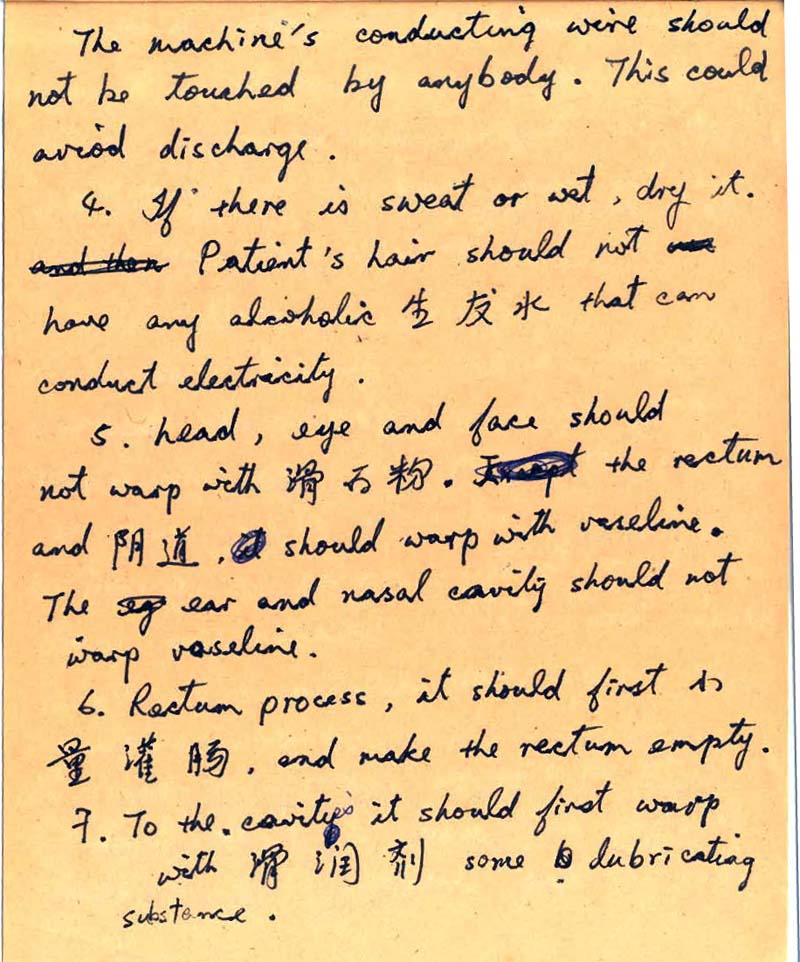 The machine's conducting wire should
not be touched by anybody. This could
aviod discharge.
4. If there is sweat or wet, dry it.
and then Patient's hair should not
have any alcoholic 生发水 that can
conduct electricity.
5. head, eye and face should
not warp with 滑石粉. Except the rectum
and 阴道, should warp with vaseline.
The ear and nasal cavity should not
warp vaseline.
6. Rectum process, it should first 少
量灌肠, and make the rectum empty.
7. To the cavity's it should first warp
with 滑润剂 some lubricating
substance.